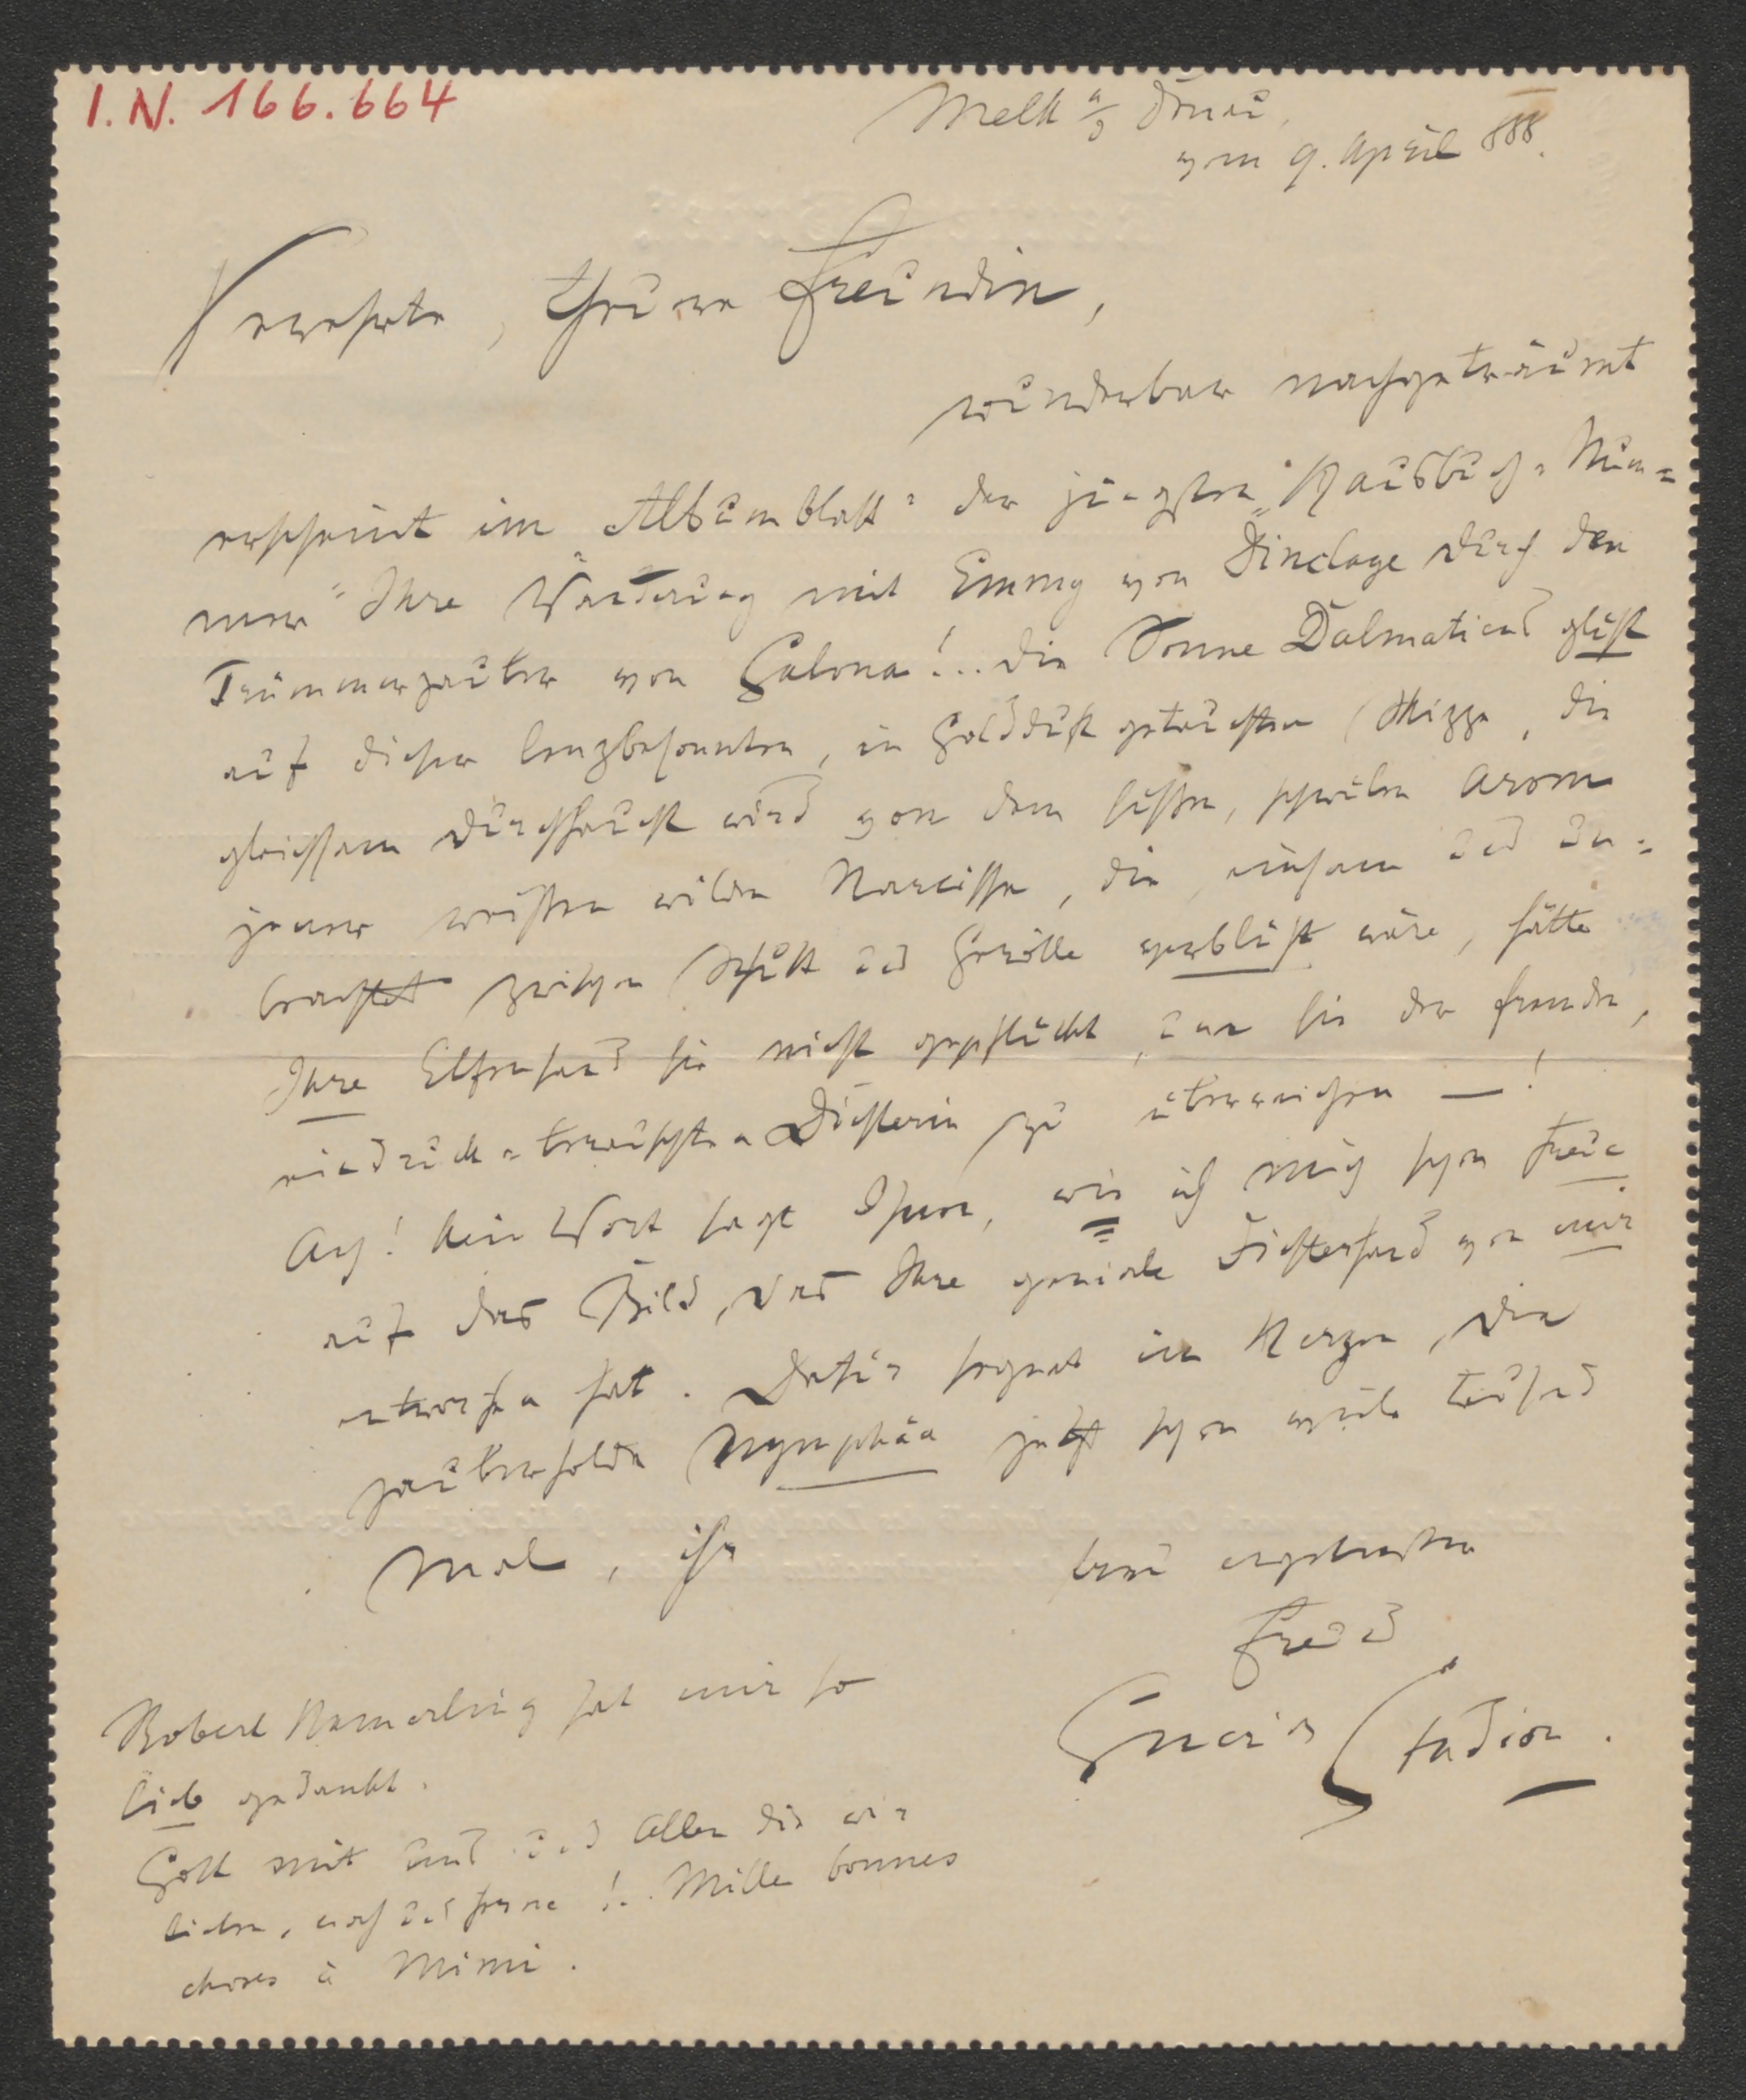 I.N. 166.664
Melk a/D Donau,
vom 9. April 888.
Verehrte, theure Freundin,
wunderbar nachgeträumt
erscheint im „Albumblatt" der jüngsten „Hausbuch-Num-
mer" Ihre Wanderung mit Emmy von Dinclage durch den
Trümmerzauber von Salona!... Die Sonne Dalmatiens glüht
auf dieser lenzbesonnten, in Goldduft getauchten Skizze, die
gleichsam durchhaucht wird von dem süßen, schwülen Arom
jener weißen wilden Narcisse, die, einsam und un-
beachtet zwischen Schutt und Gerölle verblüht wäre, hätte
Ihre Elfenhand sie nicht gepflückt, um sie der fremden,
eindruck-berauschten Dichterin zu überreichen —!
Ach! kein Wort sagt Ihnen, wie ich mich schon freue
auf das Bild, das Ihre geniale Dichterhand von mir
entworfen hat. Dafür segnet im Herzen, die
zauberholde Nymphäa jetzt schon viele tausend
Mal, ihr
treu ergebenster
Freund
Emerich Stadion.
Robert Hamerling hat mir so
lieb gedankt.
Gott mit uns und Allen die wir
lieben, nah und ferne!.. Mille bonnes
choses à Mimi.